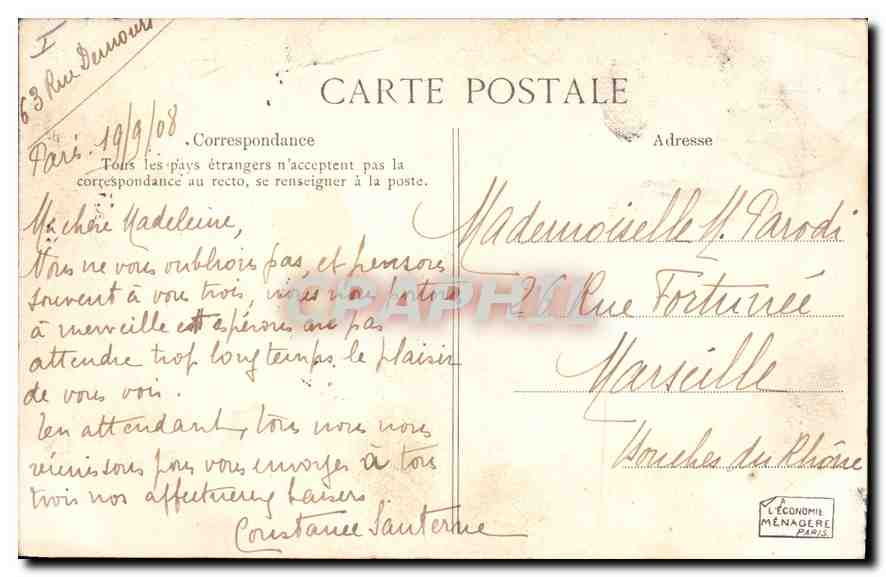 I
63 Rue Demours
CARTE POSTALE
Paris 19/9/08
Correspondance
Tous les pays étrangers n'acceptent pas la
correspondance au recto, se renseigner à la poste.
Ma chère Madeleine,
Nous ne vous oublions pas, et pensons
souvent à vous trois, nous nous portons
à merveille et espérons ne pas
attendre trop longtemps le plaisir
de vous voir.
En attendant, tous nous nous
réunissons pour vous envoyer à tous
trois nos affectueux baisers.
Constance Santerne
Adresse
Mademoiselle M. Parodi
26 Rue Fortunée
Marseille
Bouches du Rhône
CPAPHIL
A
L'ÉCONOMIE
MÉNAGÈRE
PARIS.